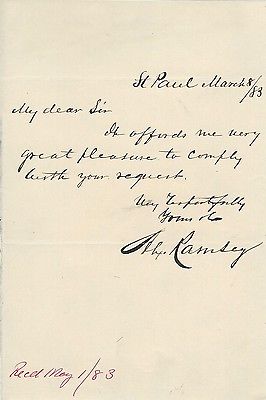 St Paul March 8/83
My dear Sir
It affords me very
great pleasure to comply
with your request.
Very Respectfully
Yours &c
Alex Ramsey
Recd May 1/83